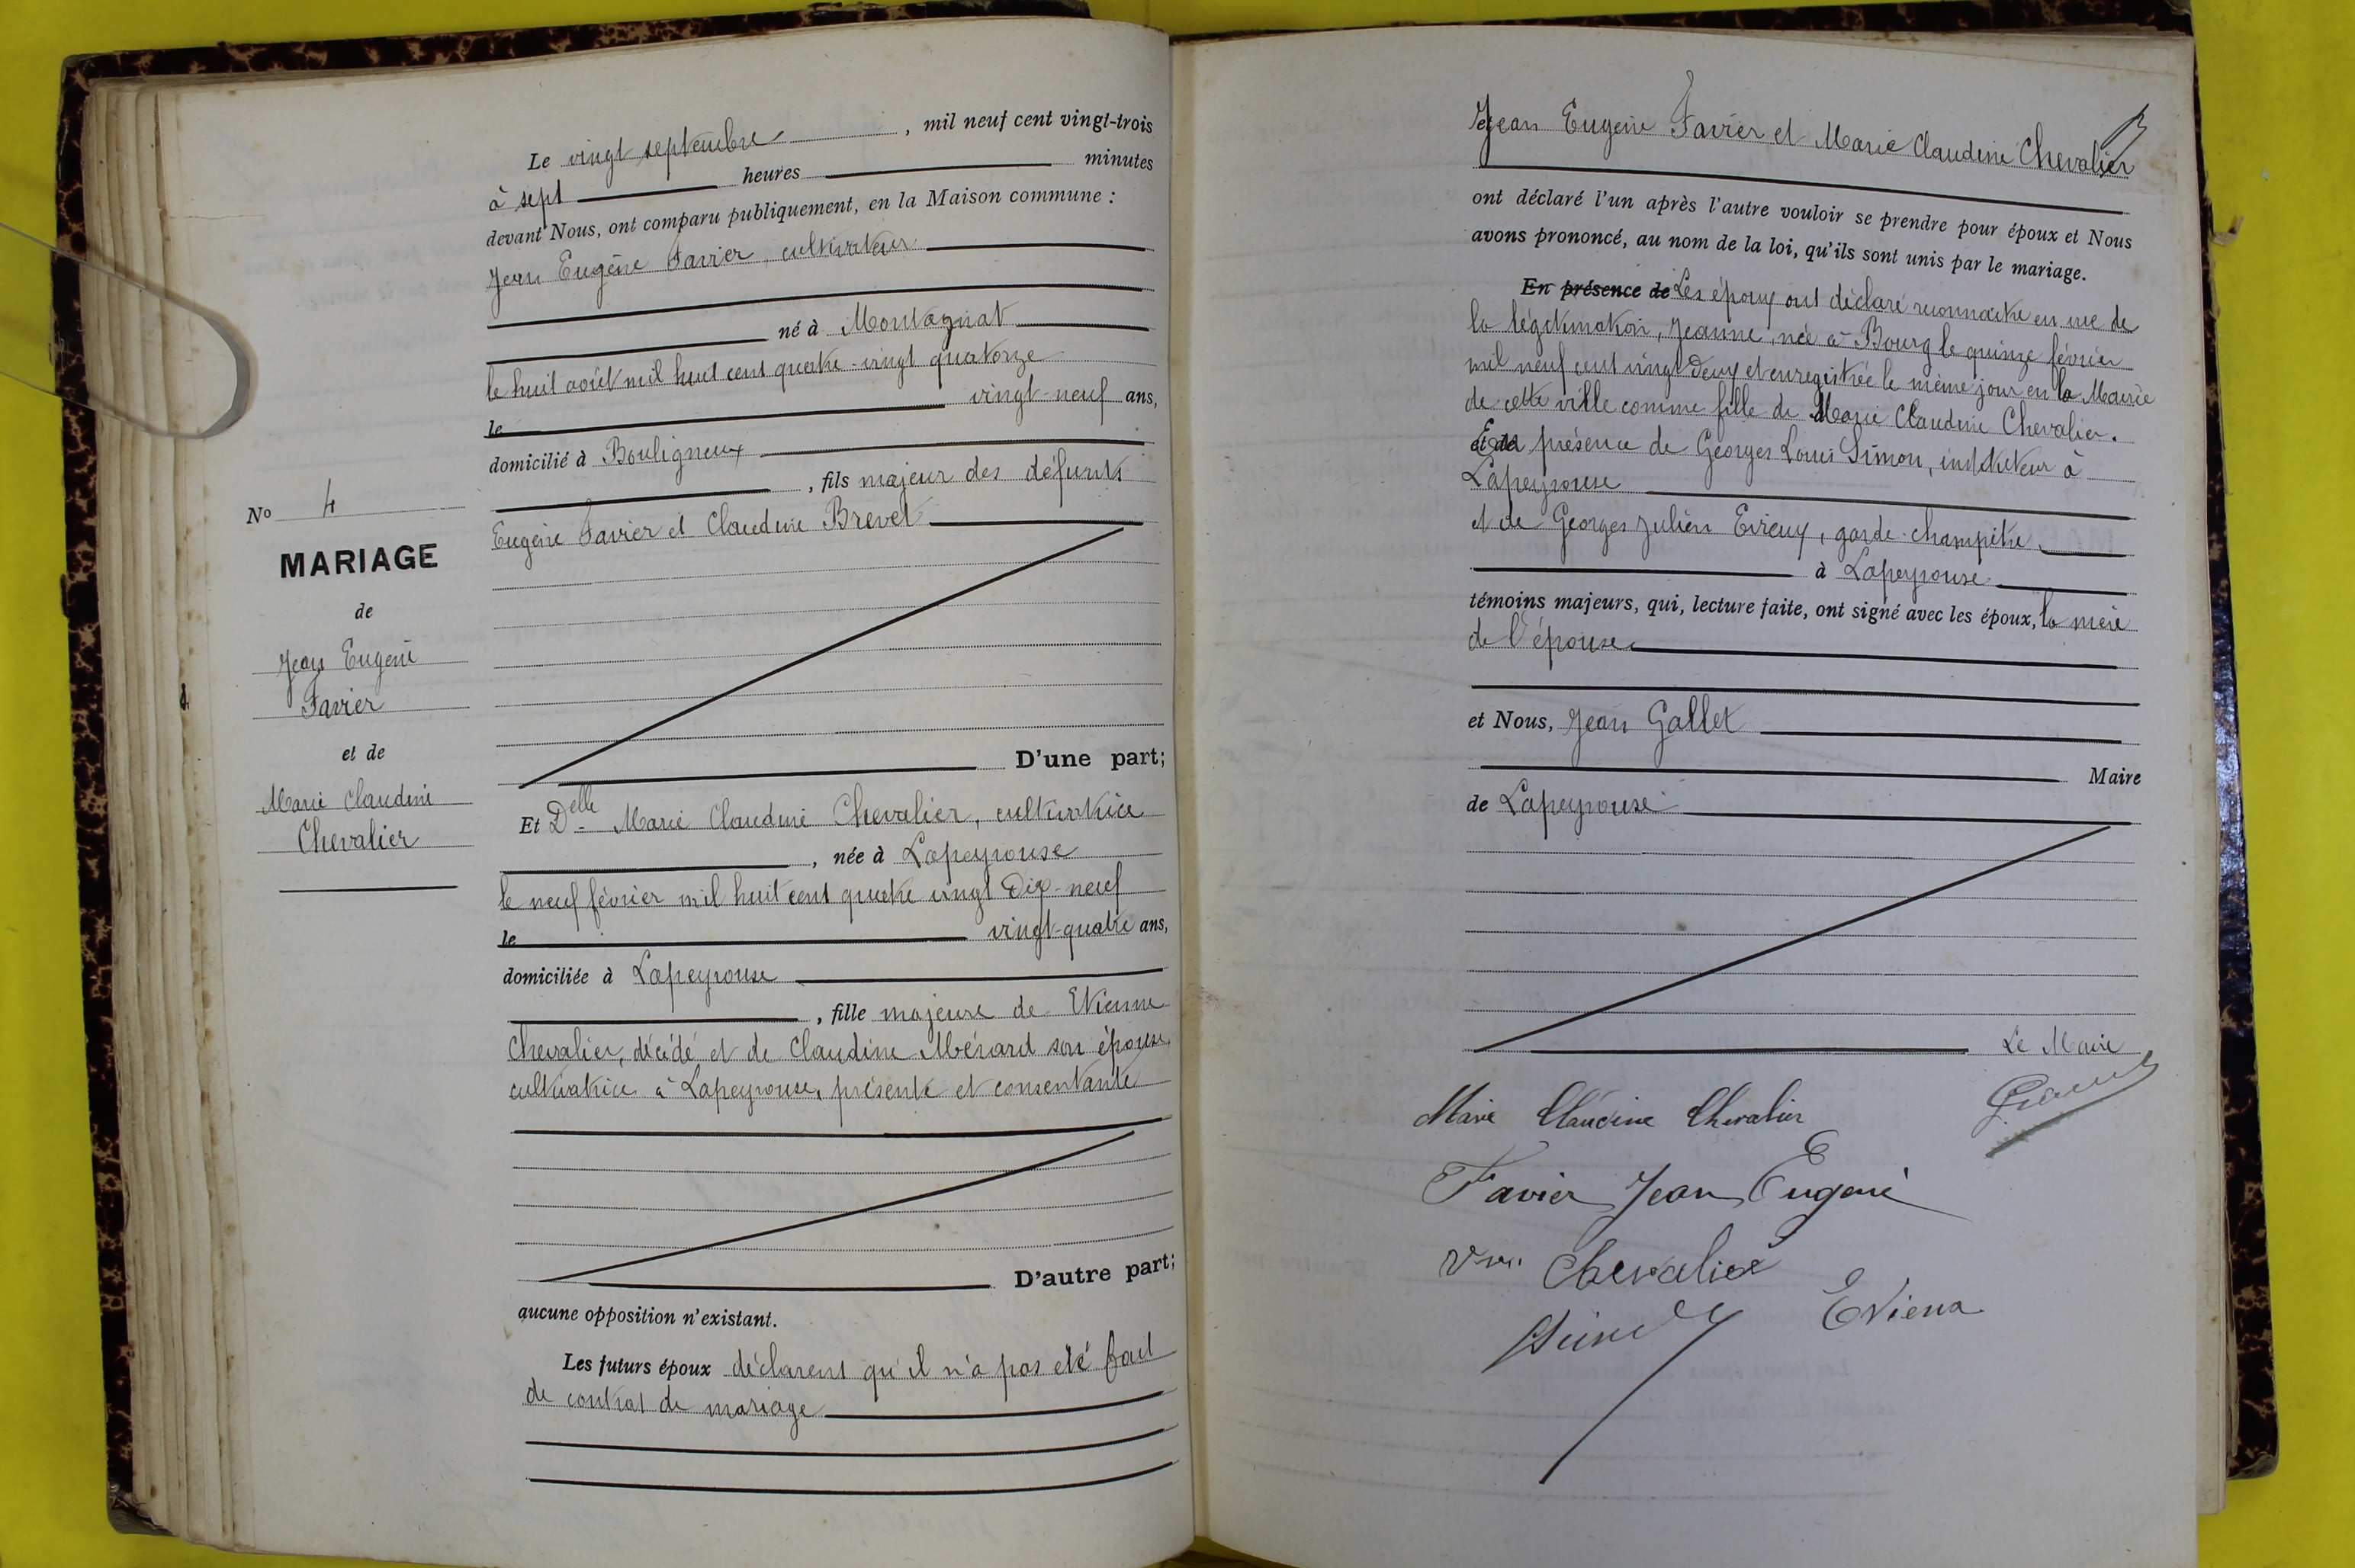 Le vingt septembre, mil neuf cent vingt-trois
à sept heures minutes
devant Nous, ont comparu publiquement, en la Maison commune :
Jean Eugène Favier, cultivateur
né à Montagnat
le huit août mil huit cent quatre-vingt quatorze
le vingt-neuf ans,
domicilié à Bouligneux
, fils majeur des défunts
Eugène Favier et Claudine Brevet
D'une part;
No 4
MARIAGE
de
Jean Eugène
Favier
et de
Marie Claudine
Chevalier
Et Delle Marie Claudine Chevalier, cultivatrice
, née à Lapeyrouse
le neuf février mil huit cent quatre vingt dix-neuf
le vingt-quatre ans,
domiciliée à Lapeyrouse
, fille majeure de Etienne
Chevalier, décédé et de Claudine Ménard son épouse,
cultivatrice à Lapeyrouse, présente et consentante
D'autre part;
aucune opposition n'existant.
Les futurs époux déclarent qu'il n'a pas été fait
de contrat de mariage
Jean Eugène Favier et Marie Claudine Chevalier
ont déclaré l'un après l'autre vouloir se prendre pour époux et Nous
avons prononcé, au nom de la loi, qu'ils sont unis par le mariage.
En présence de Les époux ont déclaré reconnaître en vue de
la légitimation, Jeanne, née à Bourg le quinze février
mil neuf cent vingt deux et enregistrée le même jour en la Mairie
de cette ville comme fille de Marie Claudine Chevalier.
En présence de Georges Louis Simon, instituteur à
Lapeyrouse
et de Georges Julien Evieux, garde-champêtre
à Lapeyrouse
témoins majeurs, qui, lecture faite, ont signé avec les époux, la mère
de l'épouse
et Nous, Jean Gallet
Maire
de Lapeyrouse
Le Maire
Marie Claudine Chevalier
Favier Jean Eugène
Vve Chevalier